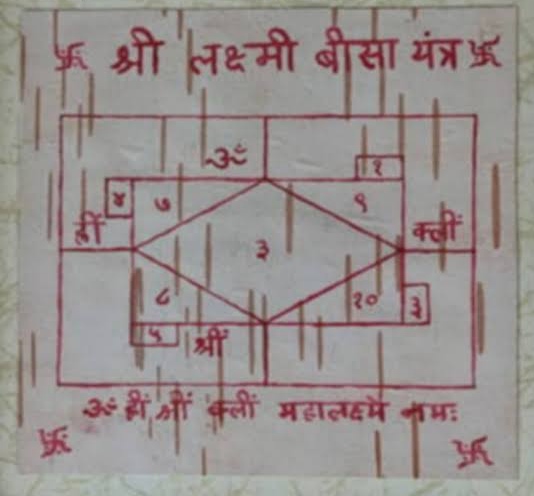 卐 श्री लक्ष्मी बीसा यंत्र 卐
ॐ १
४ ७ ९
ह्रीं ३ क्लीं
८ १० ३
५ श्रीं
ॐ ह्रीं श्रीं क्लीं महालक्ष्मे नमः
卐 卐